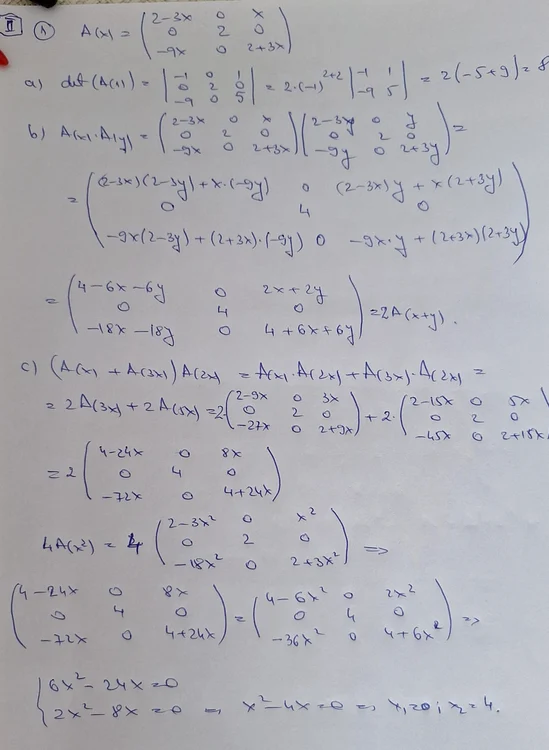 II 1 A(x) = ( 2-3x 0 x
0 2 0
-9x 0 2+3x )
a) det(A(1)) = | -1 0 1
0 2 0
-9 0 5 | = 2·(-1)^{2+2} | -1 1
-9 5 | = 2(-5+9) = 8
b) A(x)·A(y) = ( 2-3x 0 x
0 2 0
-9x 0 2+3x ) ( 2-3y 0 y
0 2 0
-9y 0 2+3y ) =
= ( (2-3x)(2-3y)+x·(-9y) 0 (2-3x)y + x(2+3y)
0 4 0
-9x(2-3y)+(2+3x)·(-9y) 0 -9x·y + (2+3x)(2+3y) )
= ( 4-6x-6y 0 2x+2y
0 4 0
-18x-18y 0 4+6x+6y ) = 2A(x+y).
c) (A(x) + A(3x))A(2x) = A(x)·A(2x) + A(3x)·A(2x) =
= 2A(3x) + 2A(5x) = 2 ( 2-9x 0 3x
0 2 0
-27x 0 2+9x ) + 2· ( 2-15x 0 5x
0 2 0
-45x 0 2+15x
= 2 ( 4-24x 0 8x
0 4 0
-72x 0 4+24x )
4A(x²) = 4 ( 2-3x² 0 x²
0 2 0
-18x² 0 2+3x² ) =>
( 4-24x 0 8x
0 4 0
-72x 0 4+24x ) = ( 4-6x² 0 2x²
0 4 0
-36x² 0 4+6x² ) =>
{ 6x² - 24x = 0
2x² - 8x = 0 => x² - 4x = 0 => x₁ = 0 ; x₂ = 4.